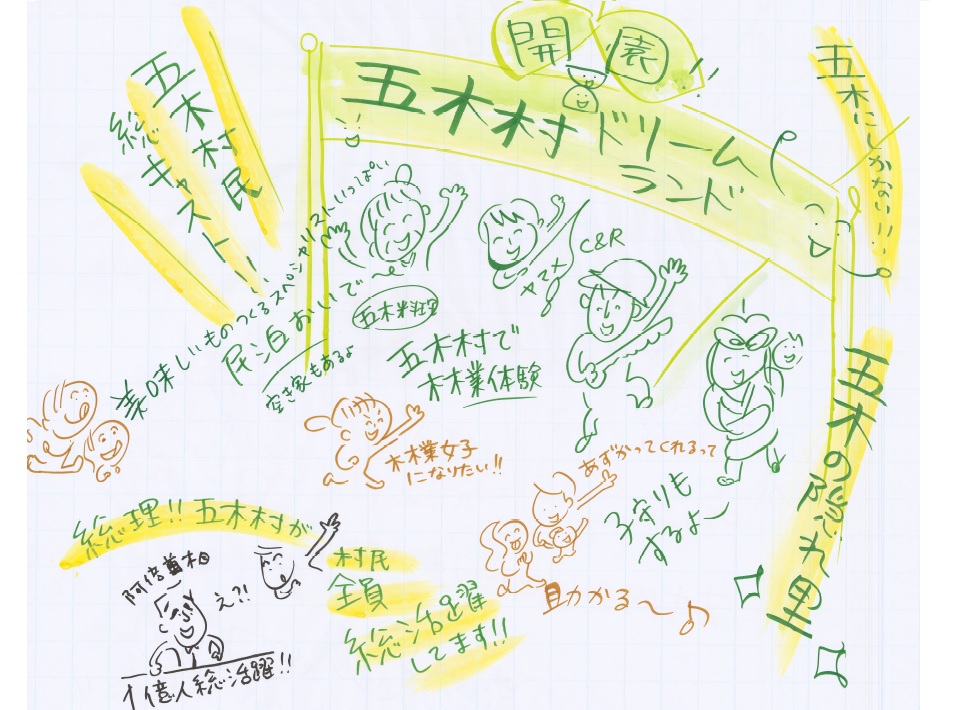 開園!!
五木村ドリーム
ランド
五木にしかない!!!
五木村民
総キャスト!!
美味しいものつくるスペシャリストいっぱい
民泊おいでで
空き家もあるよ
五木料理
ヤマメ
C&R
五木村で
林業体験
林業女子
になりたい!!
あずかってくれるって
子守りも
するよ〜
助かる〜♪
五木の隠れ里
総理!!五木村が
村民
全員
総活躍
してます!!
阿倍首相
え?!
1億人総活躍!!